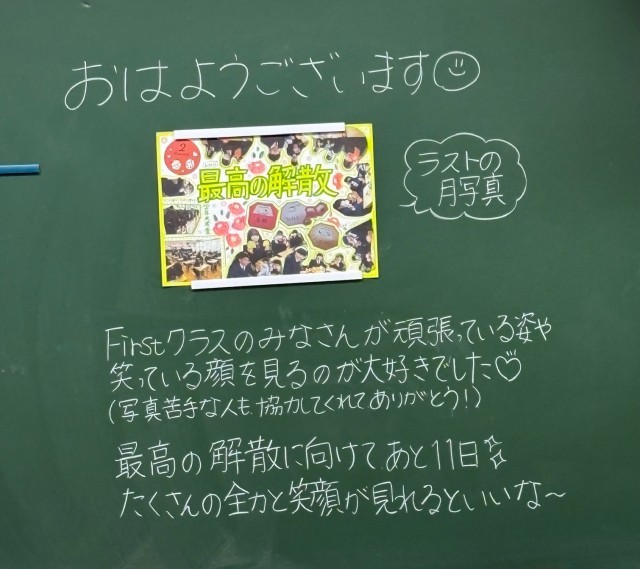 おはようございます
2
最高の解散
ラストの
月写真
Firstクラスのみなさんが頑張っている姿や
笑っている顔を見るのが大好きでした♡
(写真苦手な人も、協力してくれてありがとう!)
最高の解散に向けて、あと11日
たくさんの全力と笑顔が見れるといいな〜